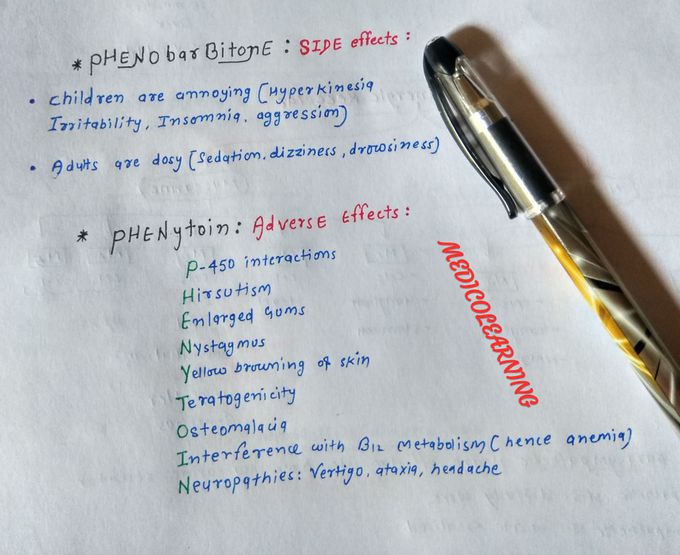 * PHENobarBitonE : SIDE effects :
• Children are annoying [Hyperkinesia
Irritability, Insomnia, aggression]
• Adults are dosy [Sedation, dizziness, drowsiness]
* PHENytoin : AdversE Effects :
P-450 interactions
Hirsutism
Enlarged Gums
Nystagmus
Yellow browning of skin
Teratogenicity
Osteomalacia
Interference with B12 metabolism (hence anemia)
Neuropathies: Vertigo, ataxia, headache
MEDICOLEARNING